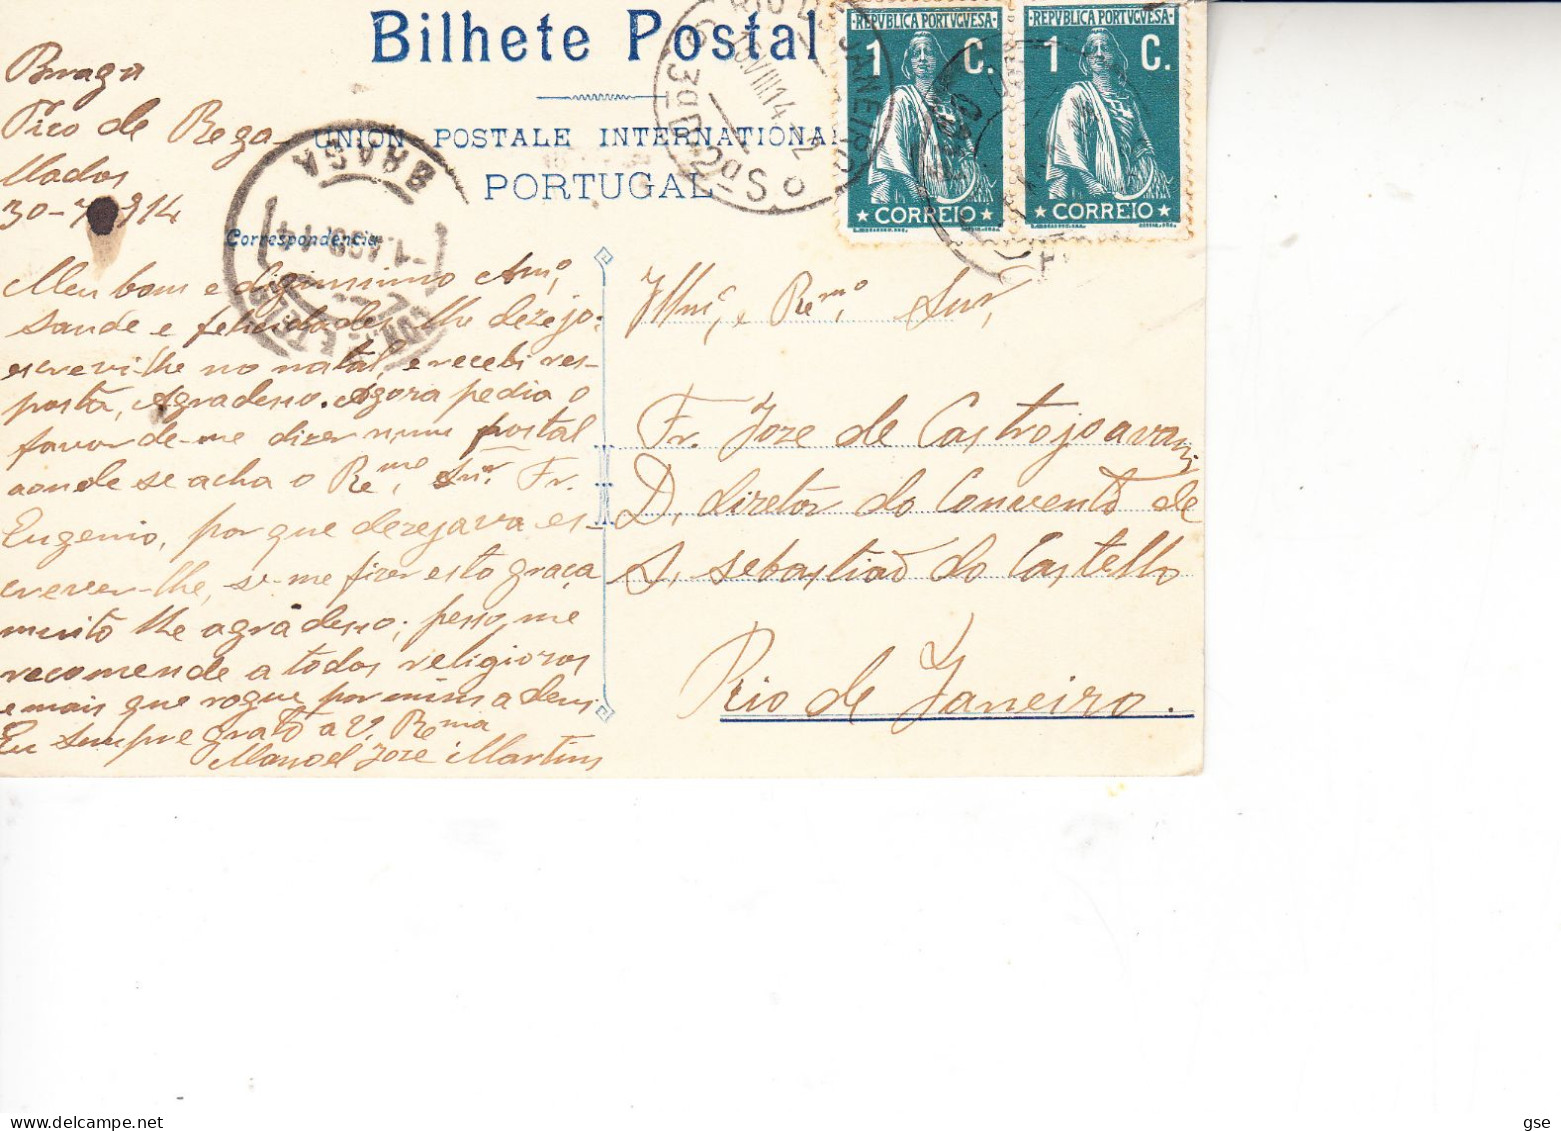 Bilhete Postal
UNION POSTALE INTERNATIONAL
PORTUGAL
Correspondencia
REPVBLICA PORTVGVESA
1 C.
CORREIO
REPVBLICA PORTVGVESA
1 C.
CORREIO
RIO DE JANEIRO
VIII 14
BRAGA
1 AGO 14
Braga
Pico de Rega-
llados
30-7-914
Meu bom e dignissimo Am.º,
saude e felicidades lhe dezejo;
escrevi-lhe no natal, e recebi res-
posta, Agradesso. Agora pedia o
favor de-me dizer num postal
aonde se acha o Rem.mo, Snr. Fr.
Eugenio, por que dezejava es-
crever-lhe, se-me fizer esta graça
muito lhe agradesso; pesso, me
recomende a todos religiozos
e mais que rogue por mim a deus
Eu sempre grato a V. Rema
Manoel Joze Martins
Illm.º, e Rem.º, Snr,
Fr. Joze de Castrojoavani
D. diretor do Convento de
S. Sebastiaõ do Castello
Rio de Janeiro.
gse